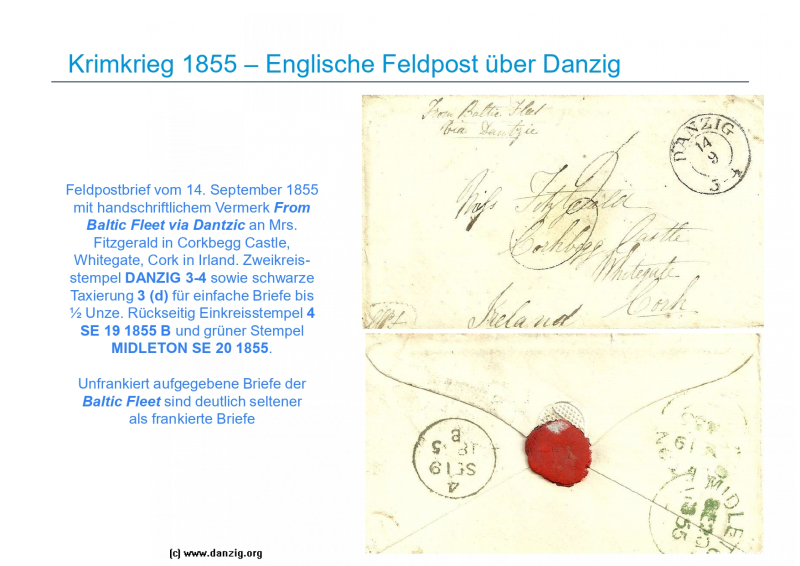 Krimkrieg 1855 – Englische Feldpost über Danzig
Feldpostbrief vom 14. September 1855
mit handschriftlichem Vermerk From
Baltic Fleet via Dantzic an Mrs.
Fitzgerald in Corkbegg Castle,
Whitegate, Cork in Irland. Zweikreis-
stempel DANZIG 3-4 sowie schwarze
Taxierung 3 (d) für einfache Briefe bis
½ Unze. Rückseitig Einkreisstempel 4
SE 19 1855 B und grüner Stempel
MIDLETON SE 20 1855.
Unfrankiert aufgegebene Briefe der
Baltic Fleet sind deutlich seltener
als frankierte Briefe
From Baltic Fleet
via Dantzic
DANZIG
14
9
3-4
3
Corkbegg Castle
Whitegate
Cork
Ireland
4
SE 19
1855
B
MIDLETO
55
(c) www.danzig.org